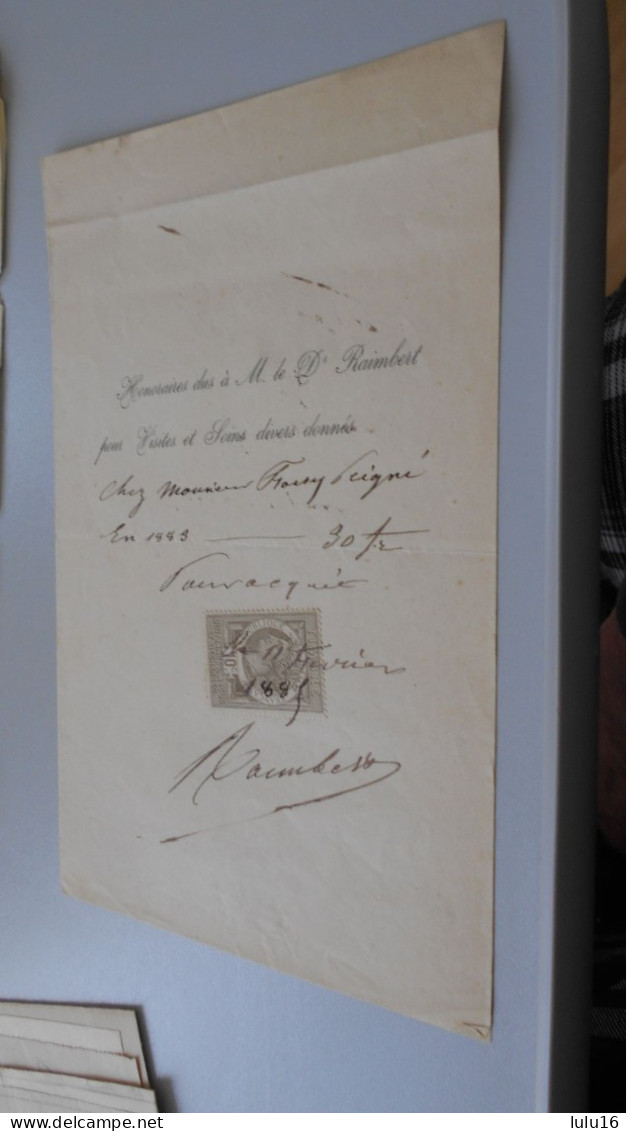 Honoraires dus à M. le Dr Raimbert
pour Visites et Soins divers donnés
Chez Monsieur Peigné
En 1883 — 30 fr
Pour acquit
Février
1885
Raimbert
lulu16
delcampe.net